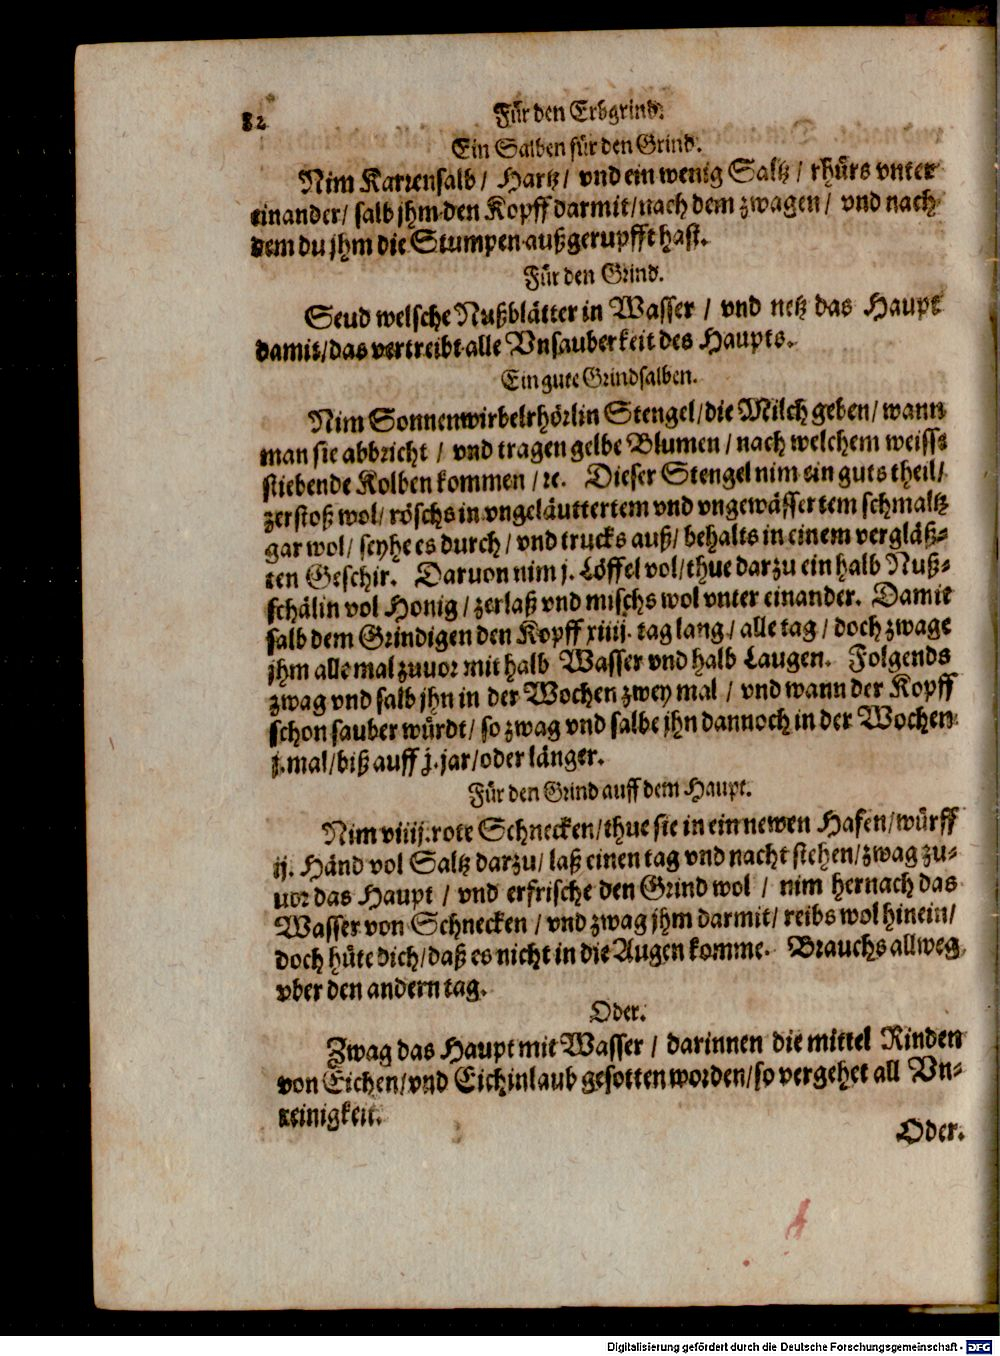 82
Für den Erbgrind.
Ein Salben für den Grind.
Nim Karrensalb / Hartz / vnd ein wenig Saltz / rhürs vnter
einander / salb jhm den Kopff darmit / nach dem zwagen / vnd nach
dem du jhm die Stumpen außgerupfft hast.
Für den Grind.
Seud welsche Nußblätter in Wasser / vnd netz das Haupt
damit / das vertreibt alle Vnsauberkeit des Haupts.
Ein gute Grindsalben.
Nim Sonnenwirbelrhörlin Stengel / die Milch geben / wann
man sie abbricht / vnd tragen gelbe Blumen / nach welchem weisse
stiebende Kolben kommen / ꝛc. Dieser Stengel nim ein guts theil /
zerstoß wol / röschs in vngeläuttertem vnd vngewässertem schmaltz
gar wol / seyhe es durch / vnd trucks auß / behalts in einem vergläß-
ten Geschir. Daruon nim j. Löffel vol / thue darzu ein halb Nuß-
schälin vol Honig / zerlaß vnd mischs wol vnter einander. Damit
salb dem Grindigen den Kopff xiiij. tag lang / alle tag / doch zwage
jhm allemal zuuor mit halb Wasser vnd halb Laugen. Folgends
zwag vnd salb jhn in der Wochen zwey mal / vnd wann der Kopff
schon sauber würdt / so zwag vnd salbe jhn dannoch in der Wochen
j. mal / biß auff j. jar / oder länger.
Für den Grind auff dem Haupt.
Nim viiij. rote Schnecken / thue sie in ein newen Hafen / würff
ij. Händ vol Saltz darzu / laß einen tag vnd nacht stehen / zwag zu-
uor das Haupt / vnd erfrische den Grind wol / nim hernach das
Wasser von Schnecken / vnd zwag jhm darmit / reibs wol hinein /
doch hüte dich / daß es nicht in die Augen komme. Brauchs allweg
vber den andern tag.
Oder.
Zwag das Haupt mit Wasser / darinnen die mittel Rinden
von Eichen / vnd Eichinlaub gesotten worden / so vergehet all Vn-
reinigkeit.
Oder.
Digitalisierung gefördert durch die Deutsche Forschungsgemeinschaft - DFG